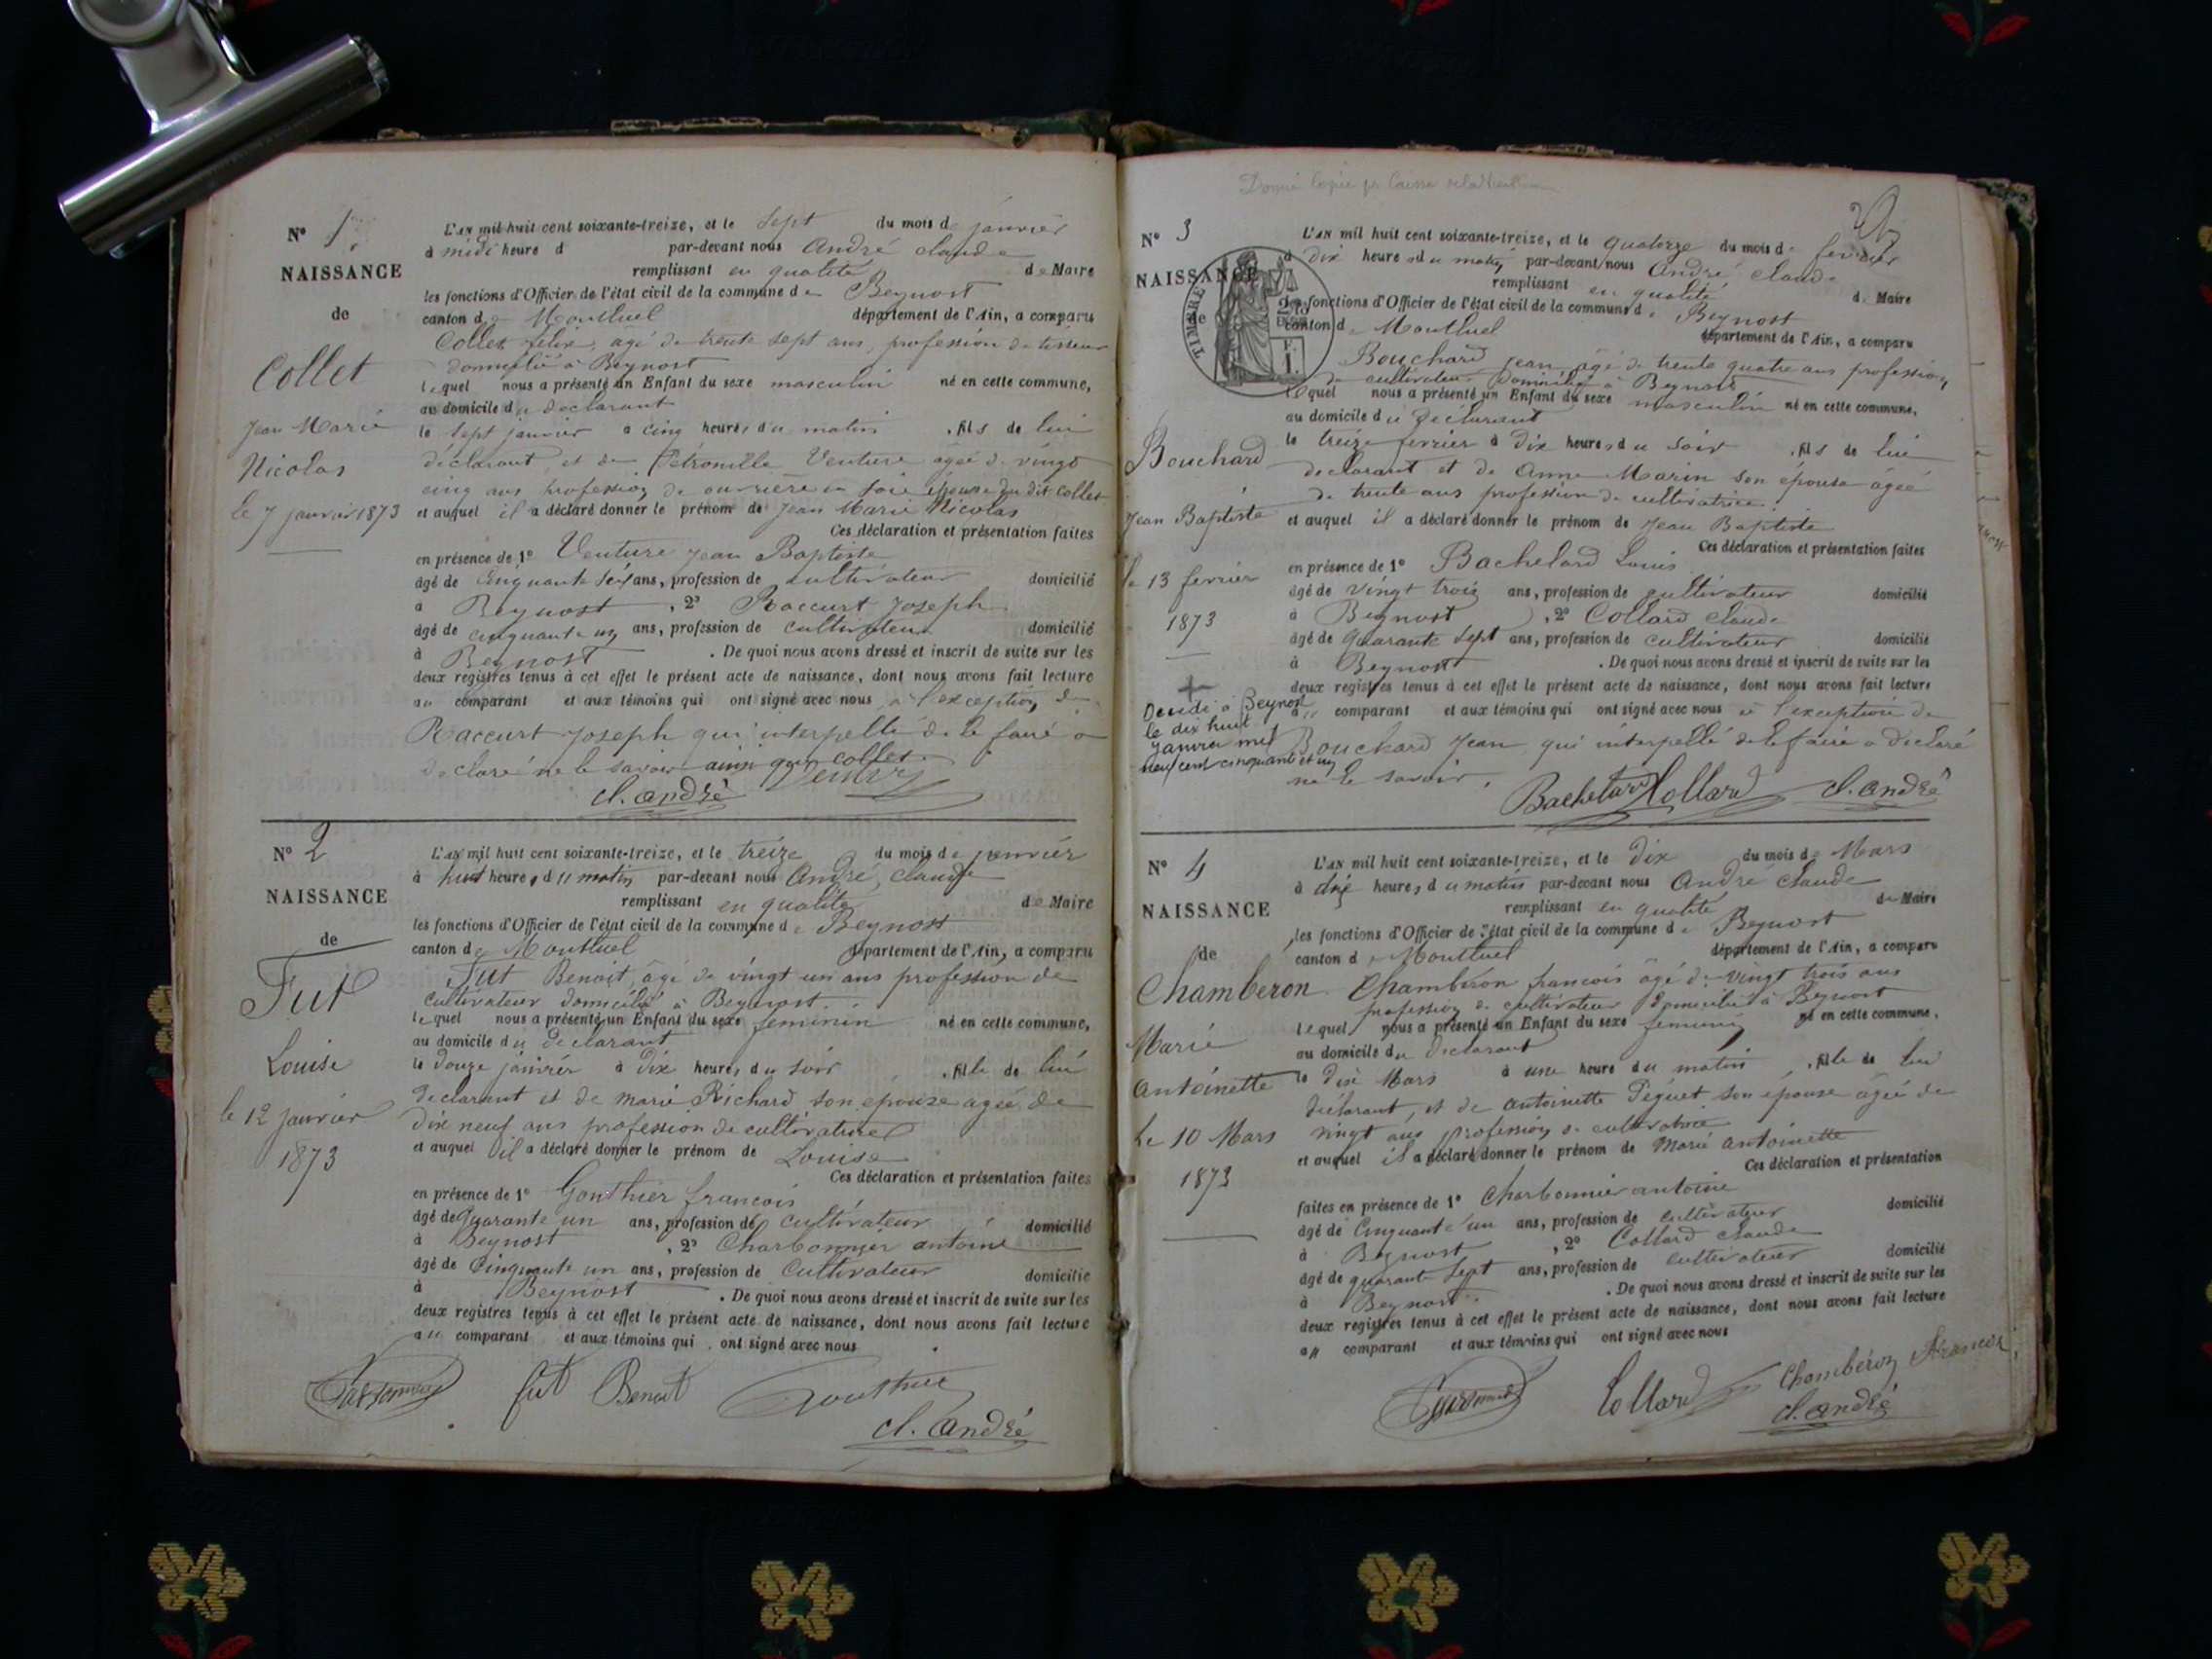 N° 1
NAISSANCE
de
Collet
Jean Marie
Nicolas
le 7 janvier 1873
L'AN mil huit cent soixante-treize, et le Sept du mois de janvier
à midi heure d par-devant nous André claude
remplissant en qualité de Maire
les fonctions d'Officier de l'état civil de la commune de Beynost
canton de Montluel département de l'Ain, a comparu
Collet félix, agé de trente sept ans, profession de tisseur
domicilié à Beynost
lequel nous a présenté un Enfant du sexe masculin né en cette commune,
au domicile du declarant
le sept janvier à cinq heures du matin , fils de lui
déclarant, et de Pétronille Venture agée de vingt
cinq ans profession de ouvrière en soie épouse du dit Collet
et auquel il a déclaré donner le prénom de Jean Marie Nicolas
Ces déclaration et présentation faites
en présence de 1° Venture Jean Baptiste
âgé de Cinquante six ans, profession de cultivateur domicilié
à Beynost , 2° Raccurt Joseph
âgé de cinquante un ans, profession de cultivateur domicilié
à Beynost . De quoi nous avons dressé et inscrit de suite sur les
deux registres tenus à cet effet le présent acte de naissance, dont nous avons fait lecture
au comparant et aux témoins qui ont signé avec nous à l'exception de
Raccurt Joseph qui interpellé de le faire a
declaré ne le savoir ainsi que collet
cl. andré
N° 2
NAISSANCE
de
Fut
Louise
le 12 janvier
1873
L'AN mil huit cent soixante-treize, et le treize du mois de janvier
à huit heures du matin par-devant nous André claude
remplissant en qualité de Maire
les fonctions d'Officier de l'état civil de la commune de Beynost
canton de Montluel département de l'Ain, a comparu
Fut Benoit, âgé de vingt un ans profession de
cultivateur domicilié à Beynost.
lequel nous a présenté un Enfant du sexe feminin né en cette commune,
au domicile du declarant
le douze janvier à dix heures du soir , fille de lui
declarant et de marie Richard son épouse agée de
dix neuf ans profession de cultivatrice
et auquel il a déclaré donner le prénom de Louise
Ces déclaration et présentation faites
en présence de 1° Gonthier francois
âgé de quarante un ans, profession de cultivateur domicilié
à Beynost , 2° Charbonnier antoine
âgé de Cinquante un ans, profession de Cultivateur domicilié
à Beynost . De quoi nous avons dressé et inscrit de suite sur les
deux registres tenus à cet effet le présent acte de naissance, dont nous avons fait lecture
au comparant et aux témoins qui ont signé avec nous
fut Benoit Gonthier
cl. andré
Donné Copie pr Caisse
N° 3
NAISSANCE
de
TIMBRE
Bouchard
Jean Baptiste
le 13 fevrier
1873
Décédé à Beynost
le dix huit
Janvier mil
neuf cent cinquante et un
L'AN mil huit cent soixante-treize, et le quatorze du mois de fevrier
à dix heure du matin par-devant nous André claude
remplissant en qualité de Maire
les fonctions d'Officier de l'état civil de la commune de Beynost
canton de Montluel département de l'Ain, a comparu
Bouchard jean, âgé de trente quatre ans profession
de cultivateur domicilié à Beynost
lequel nous a présenté un Enfant du sexe masculin né en cette commune,
au domicile du déclarant
le treize fevrier à dix heures du soir , fils de lui
declarant et de Anne Marin son épouse âgée
de trente ans profession de cultivatrice
et auquel il a déclaré donner le prénom de Jean Baptiste
Ces déclaration et présentation faites
en présence de 1° Bachelard Louis
âgé de vingt trois ans, profession de cultivateur domicilié
à Beynost , 2° Collard claude
âgé de quarante sept ans, profession de cultivateur domicilié
à Beynost . De quoi nous avons dressé et inscrit de suite sur les
deux registres tenus à cet effet le présent acte de naissance, dont nous avons fait lecture
au comparant et aux témoins qui ont signé avec nous à l'exception de
Bouchard Jean qui interpellé de le faire a declaré
ne le savoir.
Bachelard Collard cl. andré
N° 4
NAISSANCE
de
Chamberon
Marie
antoinette
Le 10 Mars
1873
L'AN mil huit cent soixante-treize, et le dix du mois de Mars
à dix heures du matin par-devant nous André claude
remplissant en qualité de Maire
les fonctions d'Officier de l'état civil de la commune de Beynost
canton de Montluel département de l'Ain, a comparu
Chambéron francois âgé de vingt trois ans
profession de cultivateur domicilié à Beynost
lequel nous a présenté un Enfant du sexe feminin né en cette commune,
au domicile du declarant
le dix Mars à une heure du matin , fille de lui
déclarant, et de antoinette Péguet son épouse âgée de
vingt ans profession de cultivatrice
et auquel il a déclaré donner le prénom de Marie antoinette
Ces déclaration et présentation
faites en présence de 1° Charbonnier antoine
âgé de Cinquante un ans, profession de cultivateur domicilié
à Beynost , 2° Collard claude
âgé de quarante sept ans, profession de cultivateur domicilié
à Beynost . De quoi nous avons dressé et inscrit de suite sur les
deux registres tenus à cet effet le présent acte de naissance, dont nous avons fait lecture
au comparant et aux témoins qui ont signé avec nous
Collard Chambéron francois
cl. andré